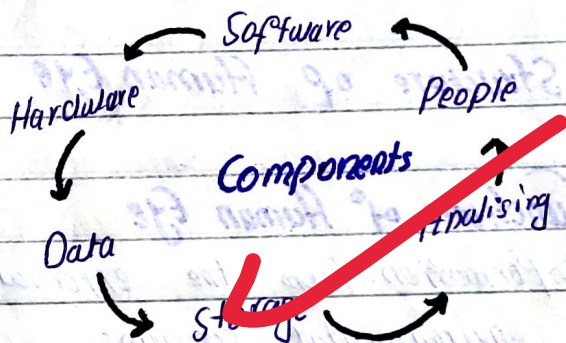 Software
Hardware
People
Components
Data
Storage